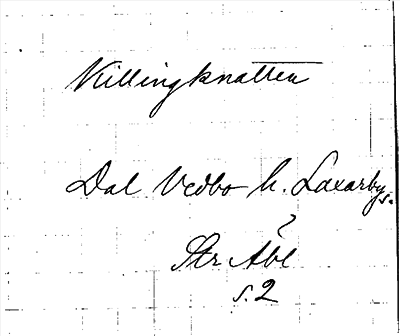 Killingknatten
Dal Vedbo h. Laxarby s.
?
Str Åbl
s. 2